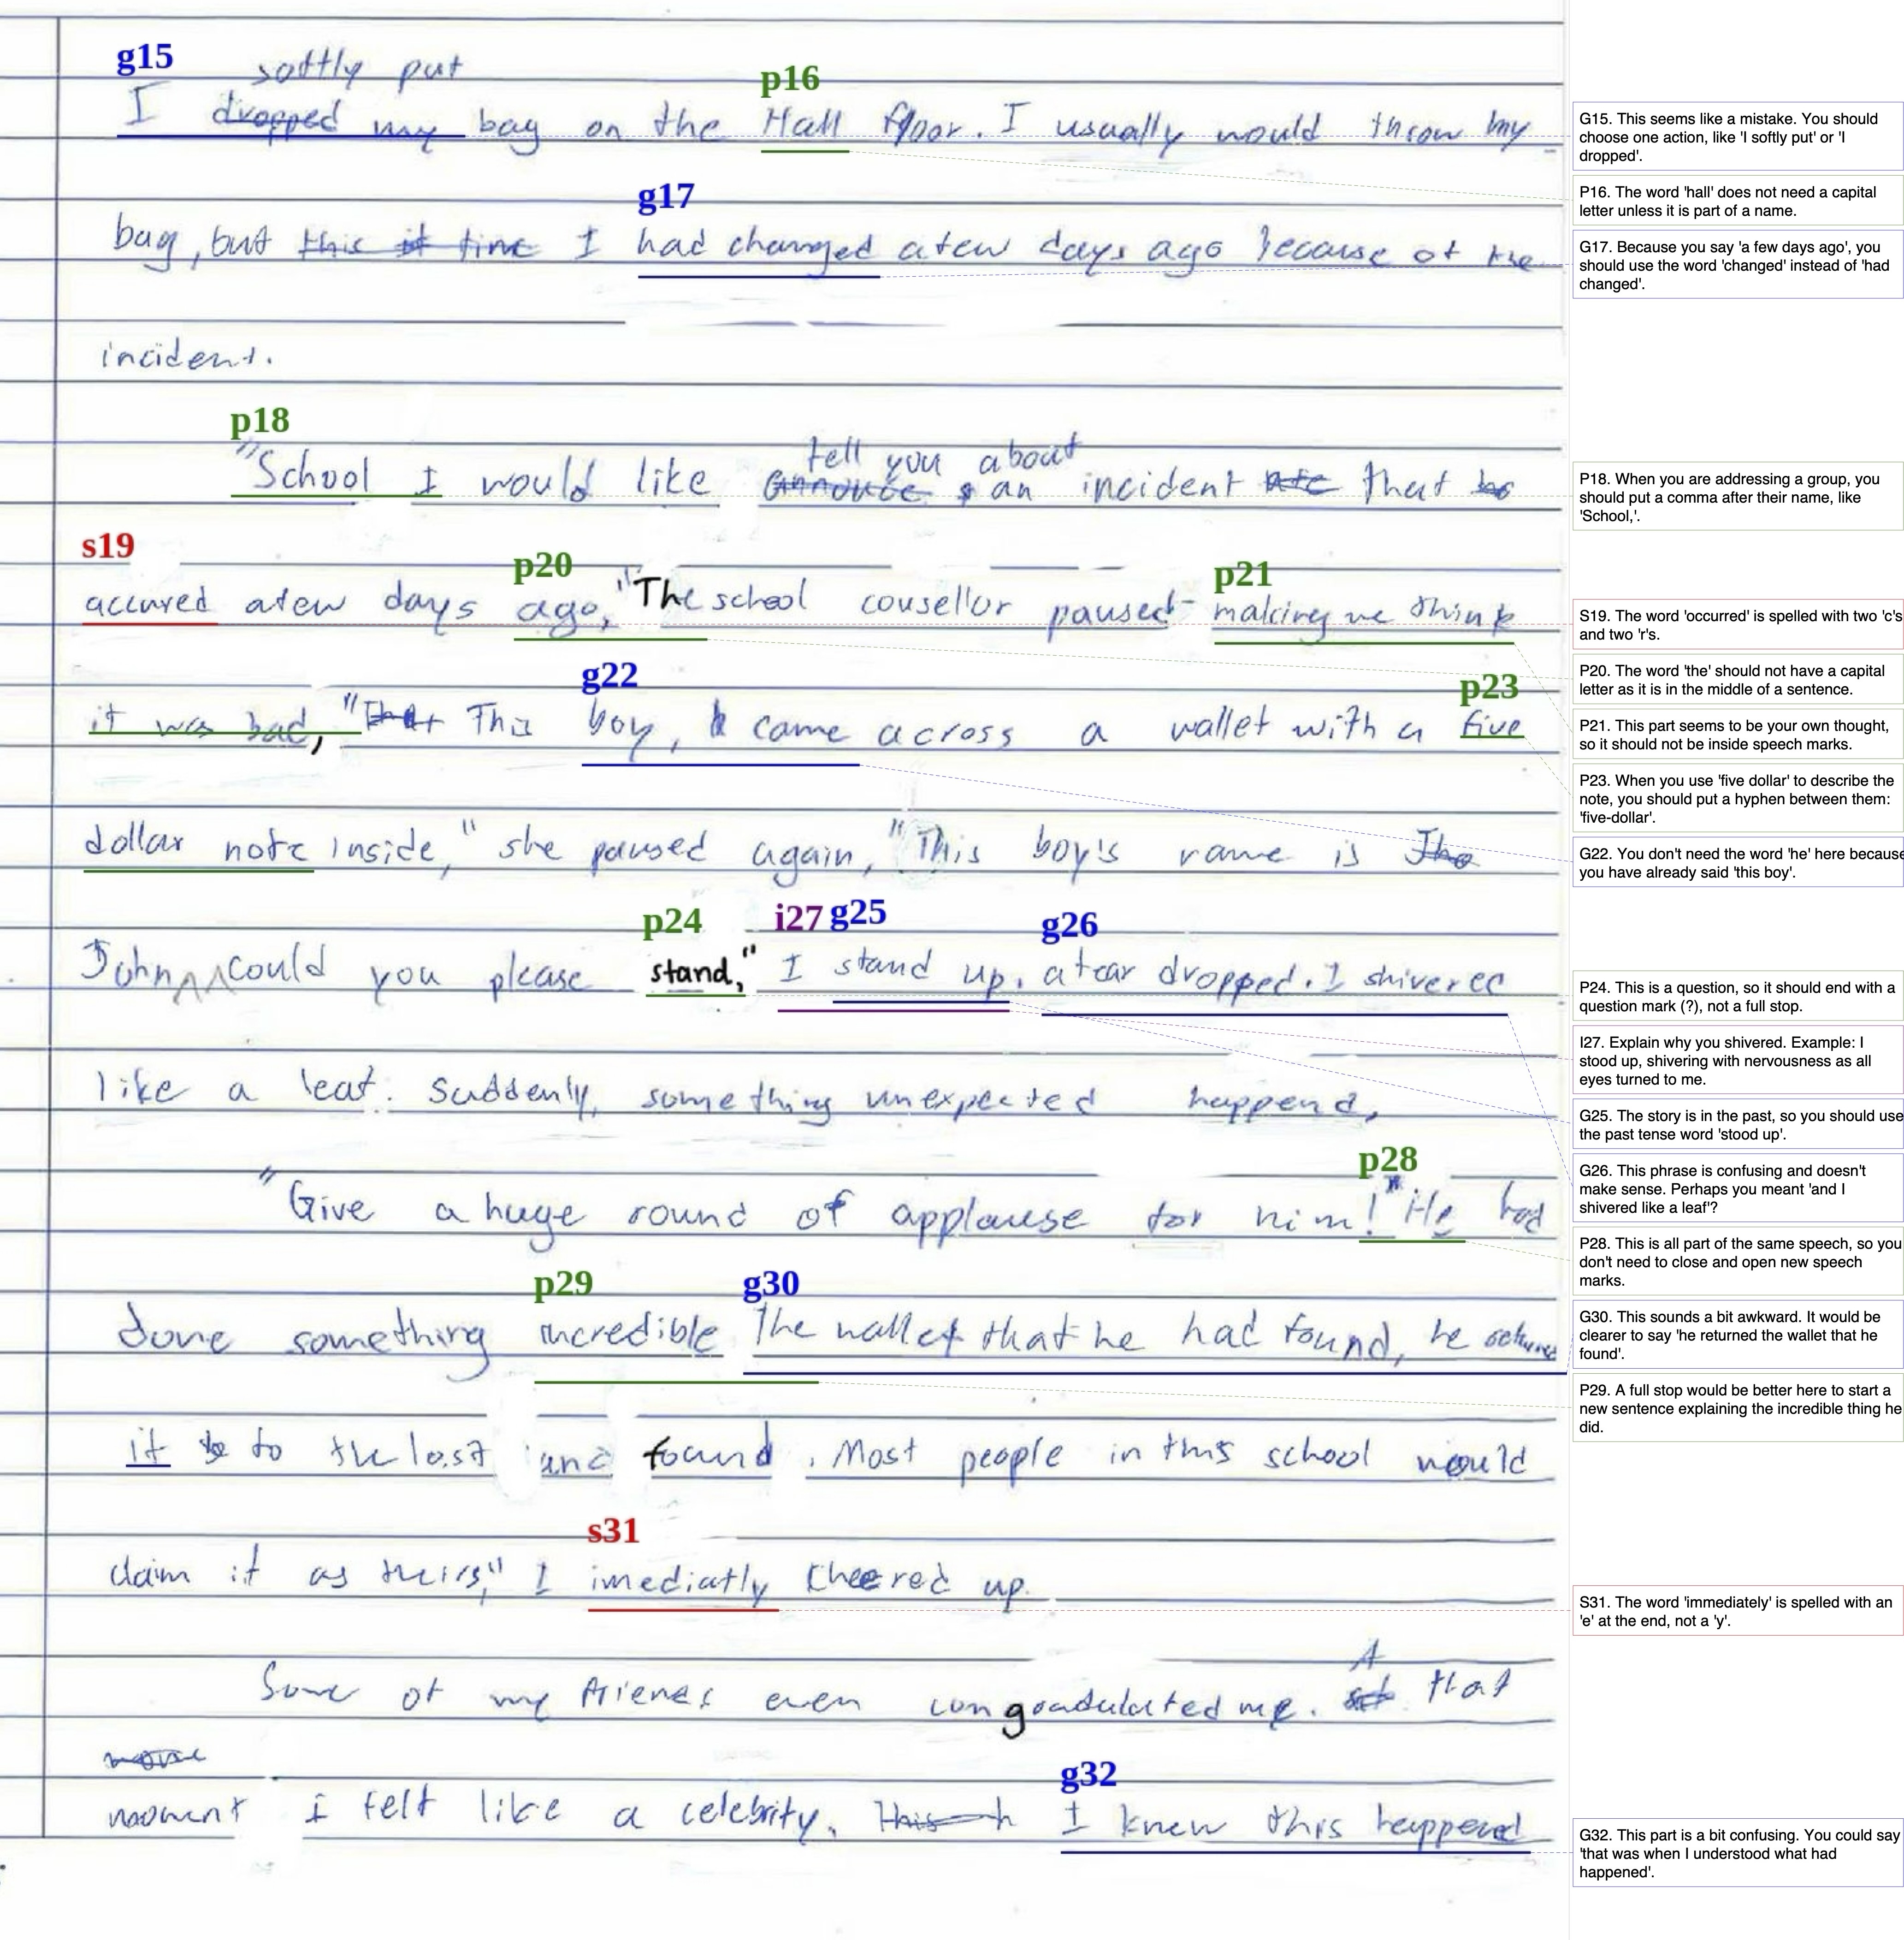 g15
softly put
p16
I dropped my bag on the Hall floor. I usually would throw my
g17
bag, but this it time I had changed afew days ago because of the
incident.
p18
tell you about
"School I would like announce an incident that
s19
p20
p21
accured afew days ago, "The school cousellor paused- making me think
g22
p23
it was bad, "That This boy, came across a wallet with a five
dollar note inside," she paused again, "This boy's name is The
p24
i27 g25
g26
John could you please stand," I stand up. a tear dropped. I shivered
like a leaf. Suddenly, something unexpected happend,
p28
"Give a huge round of applause for him!" He had
p29
g30
done something incredible The wallet that he had found, he returned
it to the lost and found. Most people in this school would
s31
claim it as theirs," I imediatly cheered up.
A
Some of my friends even congradulated me. that
g32
moment i felt like a celebrity. This I knew this happened
G15. This seems like a mistake. You should
choose one action, like 'I softly put' or 'I
dropped'.
P16. The word 'hall' does not need a capital
letter unless it is part of a name.
G17. Because you say 'a few days ago', you
should use the word 'changed' instead of 'had
changed'.
P18. When you are addressing a group, you
should put a comma after their name, like
'School,'.
S19. The word 'occurred' is spelled with two 'c's
and two 'r's.
P20. The word 'the' should not have a capital
letter as it is in the middle of a sentence.
P21. This part seems to be your own thought,
so it should not be inside speech marks.
P23. When you use 'five dollar' to describe the
note, you should put a hyphen between them:
'five-dollar'.
G22. You don't need the word 'he' here because
you have already said 'this boy'.
P24. This is a question, so it should end with a
question mark (?), not a full stop.
I27. Explain why you shivered. Example: I
stood up, shivering with nervousness as all
eyes turned to me.
G25. The story is in the past, so you should use
the past tense word 'stood up'.
G26. This phrase is confusing and doesn't
make sense. Perhaps you meant 'and I
shivered like a leaf'?
P28. This is all part of the same speech, so you
don't need to close and open new speech
marks.
G30. This sounds a bit awkward. It would be
clearer to say 'he returned the wallet that he
found'.
P29. A full stop would be better here to start a
new sentence explaining the incredible thing he
did.
S31. The word 'immediately' is spelled with an
'e' at the end, not a 'y'.
G32. This part is a bit confusing. You could say
'that was when I understood what had
happened'.